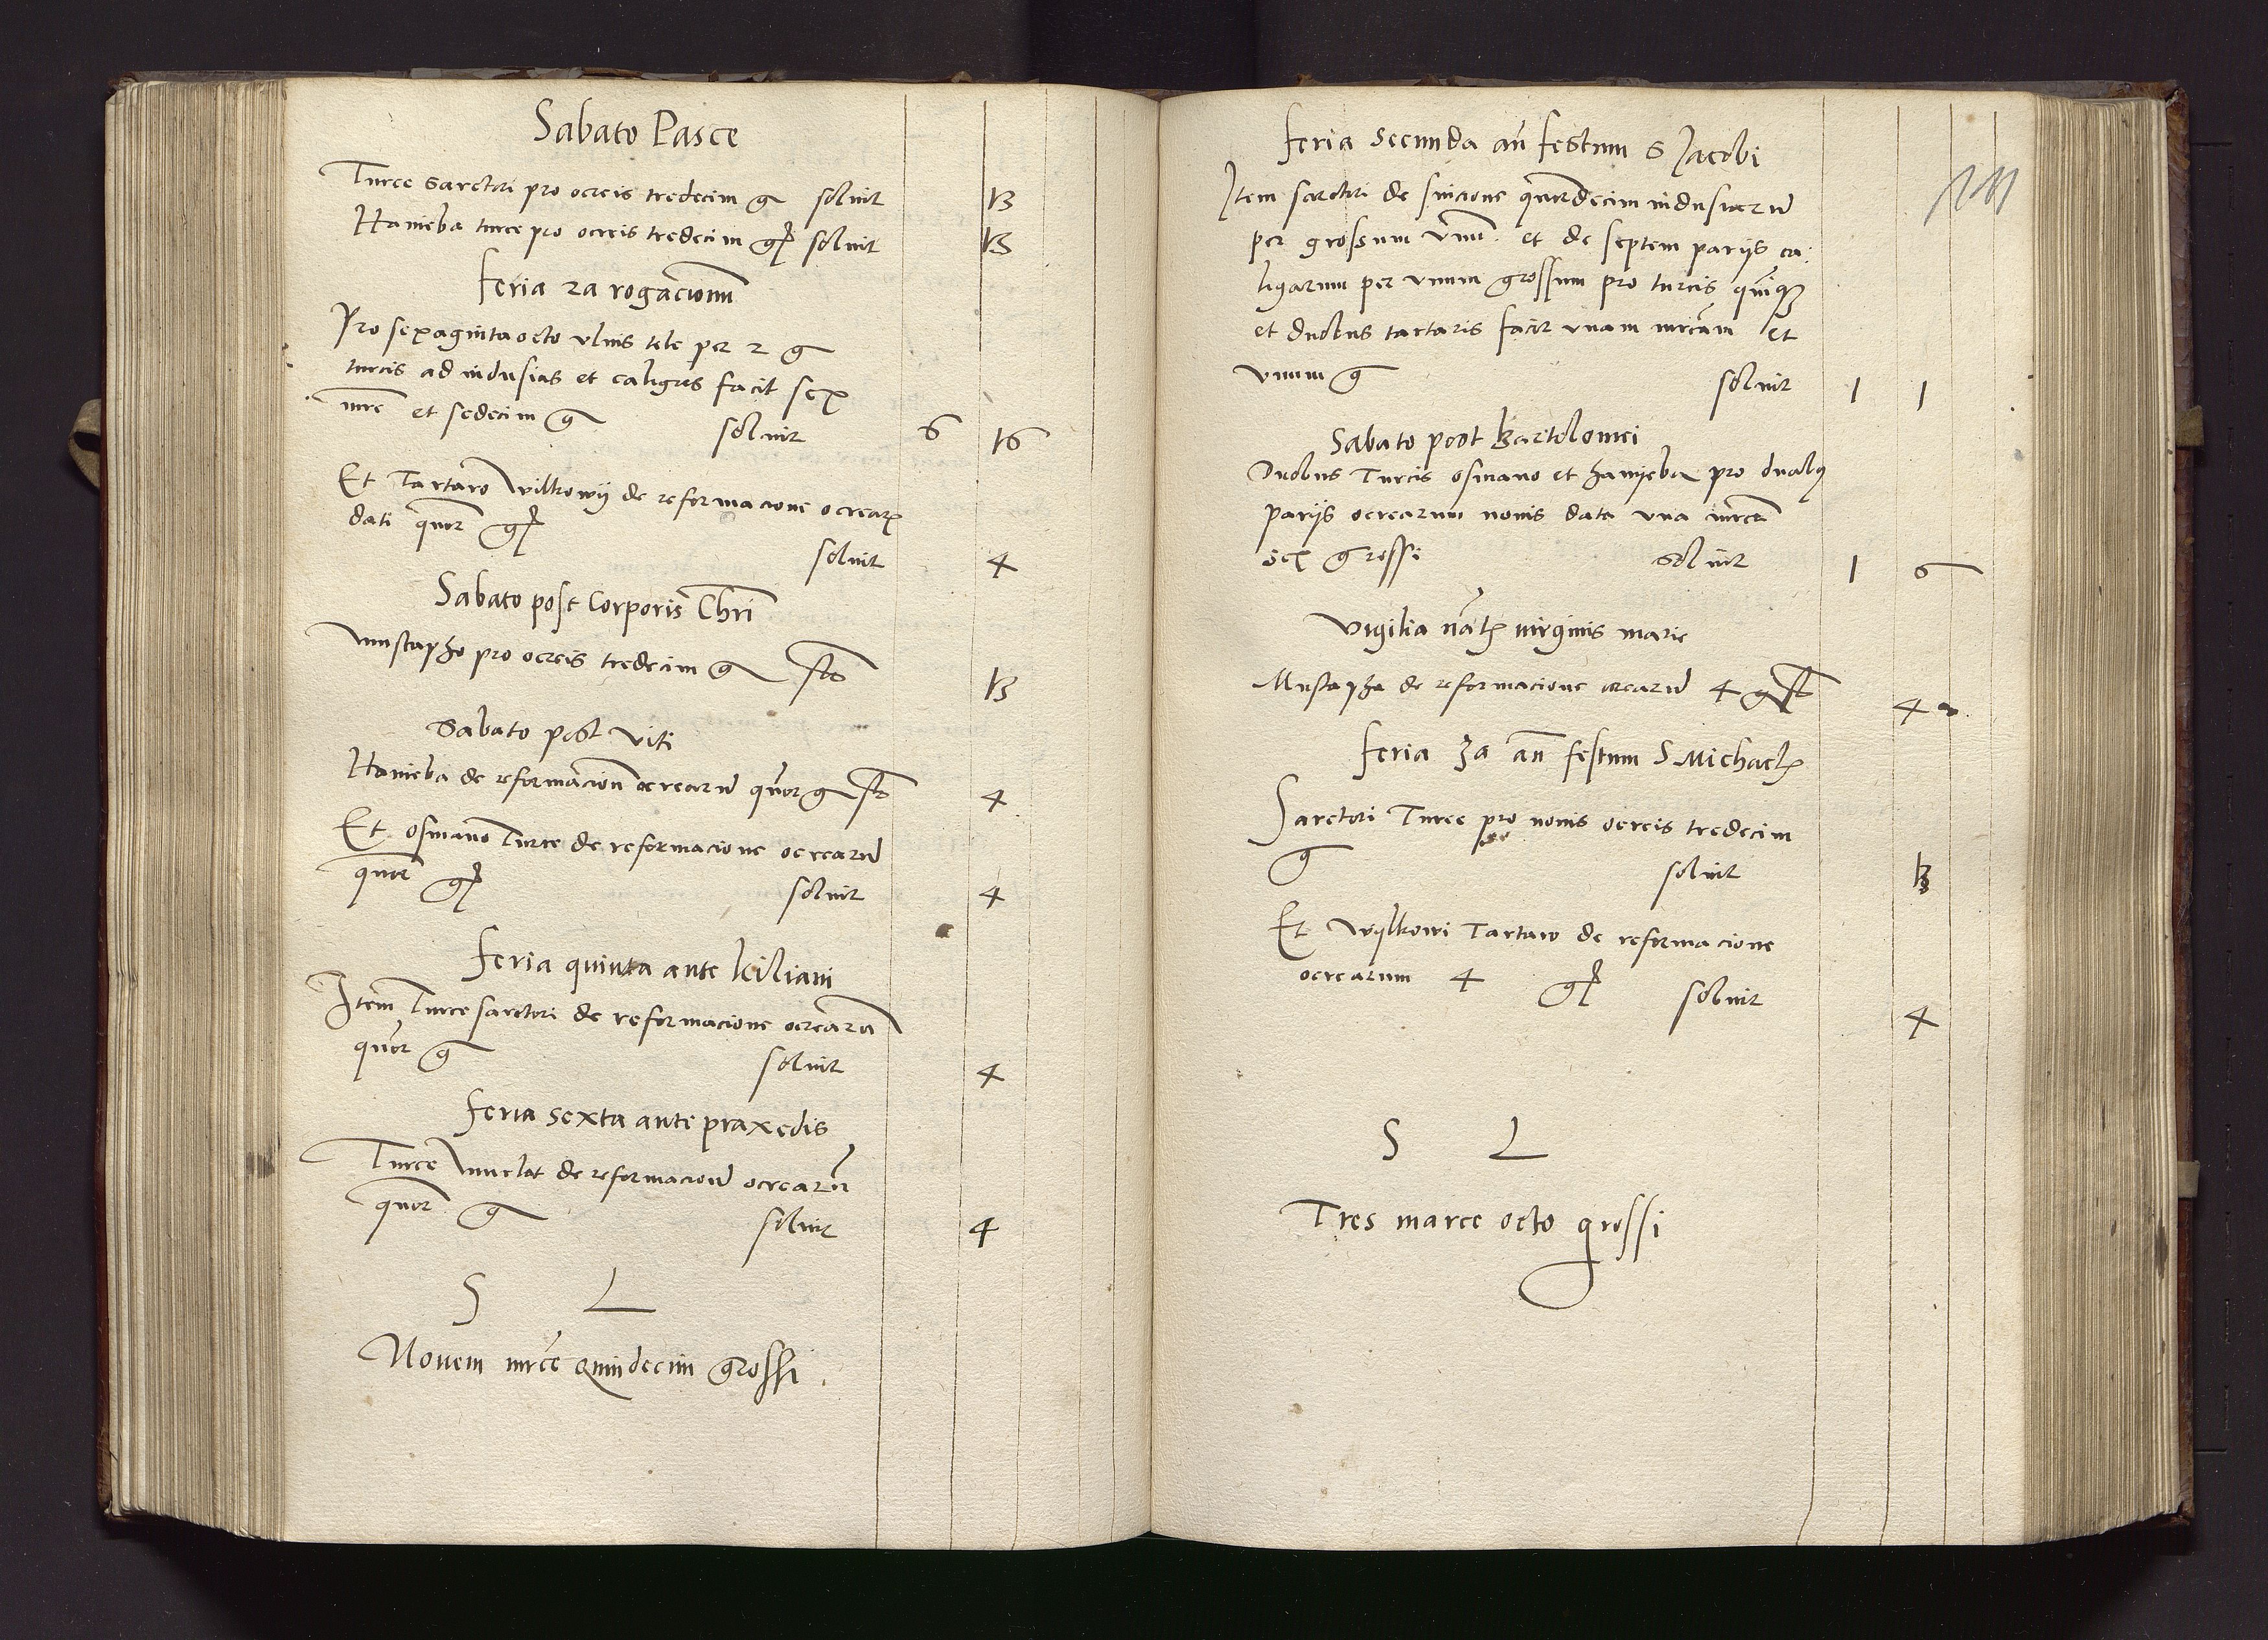 Sabato Pasce
Turce sarctori pro ocreis tredecim g soluit 13
Hanieba turce pro ocreis tredecim g soluit 13
feria 2a rogacionũ
Pro sexagintaocto ulnis tele per 2 g
turcis ad indusias et caligas facit sex
mrc et sedecim g soluit 6 16
Et Tartaro wilkowÿ de reformacione ocrear
dati quor g
soluit 4
Sabato post Corporis Chri
mustapho pro ocreis tredecim g st 13
Sabato post Viti
Hanieba de reformacion ocrearũ quor g st 4
Et osmano Turce de reformacione ocrearũ
quor g soluit 4
Feria quinta ante kiliani
Item Turce sarctori de reformacione ocrearũ
quor g soluit 4
feria sexta ante praxedis
Turce murlat de reformacioñ ocrearũ
quor g soluit 4
S L
Novem mrce quindecim grossi
feria secunda añ festum S Jacobi
Item sarctori de suicione quordecim indusiarũ
per grossum vnũ et de septem parijs ca:
ligarum per vnum grossum pro turcis quinqʒ
et duobus tartaris facit vnam mrcam et
vnum g soluit 1 1
Sabato post Bartolomei
Duobus Turcis osmano et hanijeba pro dualꝫ
parijs ocrearum novis data una mrca
sex grossi soluit 1 6
Vigilia natꝭ virginis marie
Mustapha de reformacione ocrearũ 4 g st 4
feria 3a añ festum S Michaelꝭ
Sarctori Turce pro novis ocreis tredecim
g soluit 13
Et wÿlkowi Tartaro de reformacione
ocrearum 4 g soluit
4
S L
Tres marce octo grossi